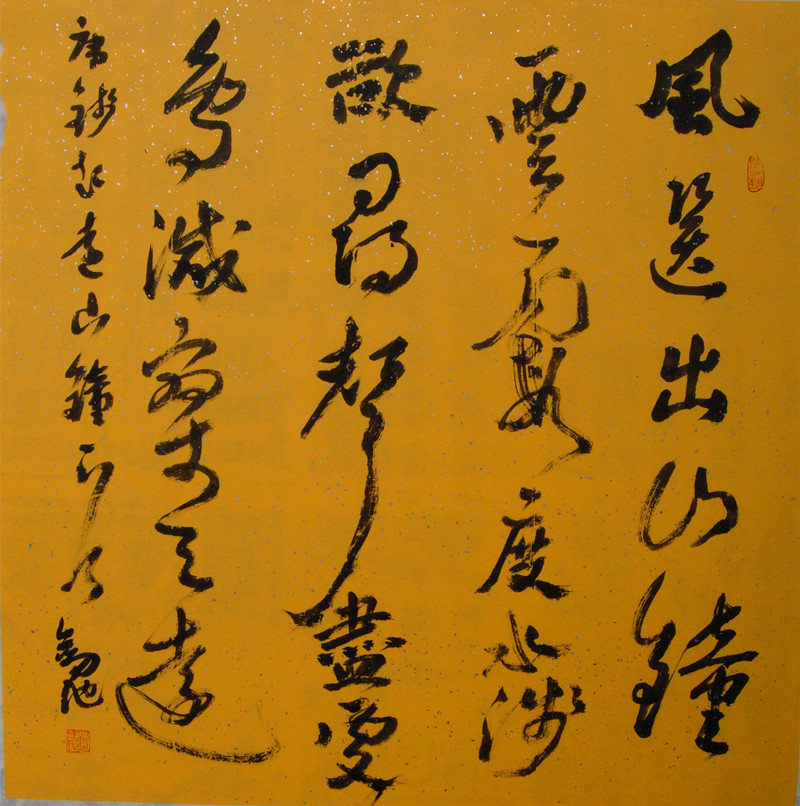 風送出山鐘
雲霞度水淺
欲尋聲盡處
鳥滅寥天遠
唐錢起遠山鐘